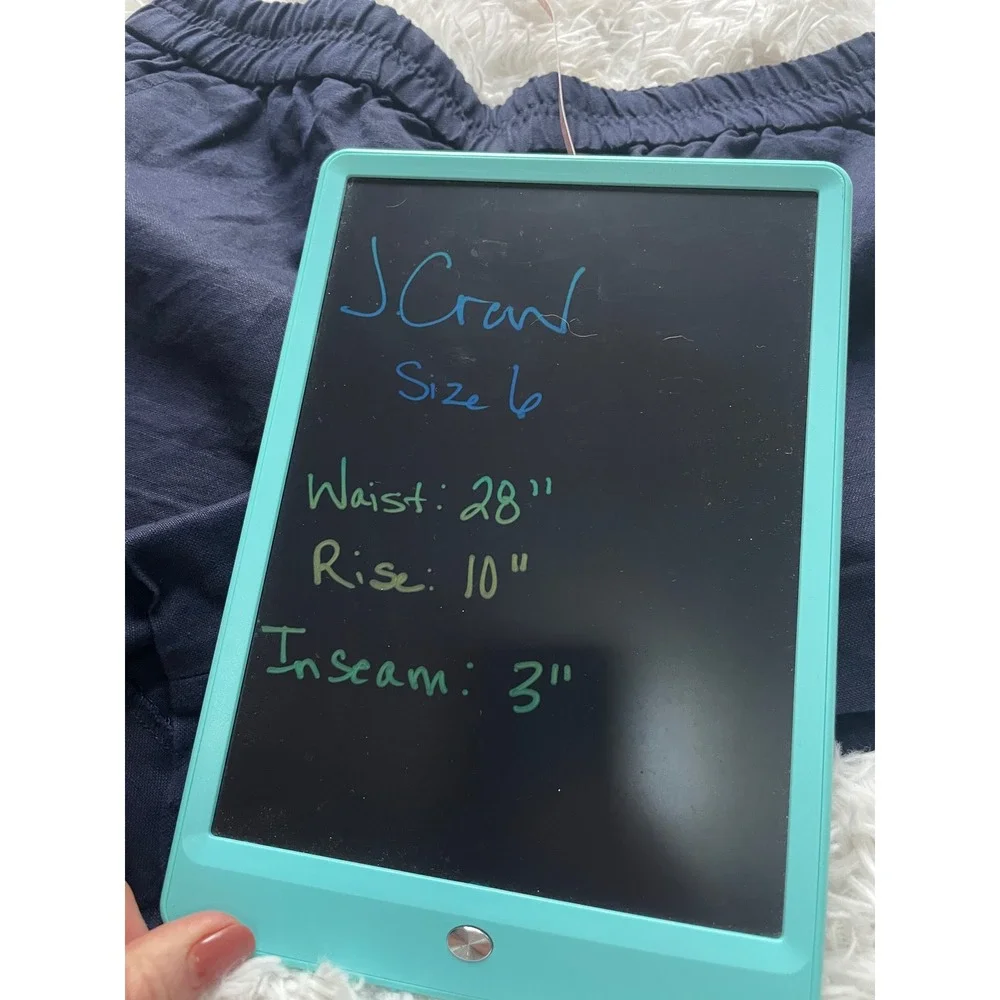 J Crew
Size 6
Waist: 28"
Rise: 10"
Inseam: 3"